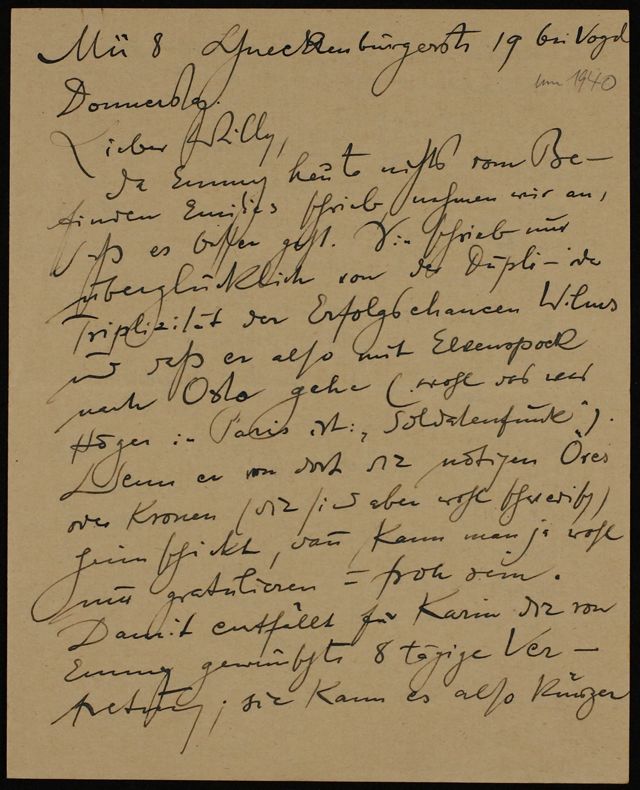 Mü 8 Schneckenburgerstr 19 bei Vogl
um 1940
Donnerstag.
Lieber Willy,
da Emmy heute nichts vom Be-
finden Emilies schrieb, nehmen wir an,
daß es besser geht. Sie schrieb nur
überglücklich von der Dupli- oder
Triplizität der Erfolgschancen Wilms
und daß er also mit Elsenspock
nach Oslo gehe (wohl das was
Höger in Paris ist: „Soldatenfunk“).
Wenn er von dort die nötigen Öres
oder Kronen (die sind aber wohl schwedisch)
heim schickt, dann kann man ja wohl
nur gratulieren = froh sein.
Damit entfällt für Karin die von
Emmy gewünschte 8 tägige Ver-
tretung; sie kann es also kürzer